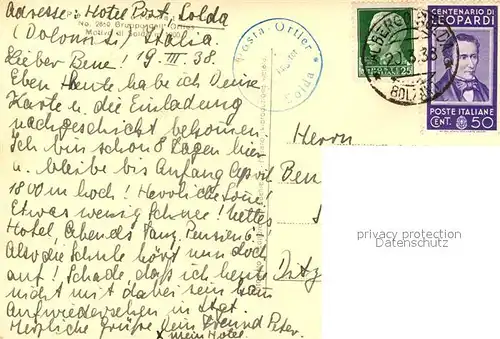 Adresse: Hotel Post, Solda
(Dolomits) Italia.
No. 2659
Motivo di Solda
Lieber Bene! 19. III. 38.
Eben Heute habe ich Deine
Karte u. die Einladung
nachgeschickt bekommen.
Ich bin schon 8 Tagen hier
u. bleibe bis Anfang April
1800 m hoch! Herrliche Sonne!
Etwas wenig Schnee! Nettes
Hotel, Abends Tanz, Pension 6.
Also die Schule hört nun doch
auf! Schade, daß ich heute
nicht mit dabei sein kann
Aufwiedersehen in Stgt.
Herzliche Grüße Dein Freund Peter.
x mein Hotel
Posta Ortler * Solda *
BOLZANO
CENTENARIO DI
LEOPARDI
POSTE ITALIANE
CENT. 50
Herrn
Ben
privacy protection
Datenschutz